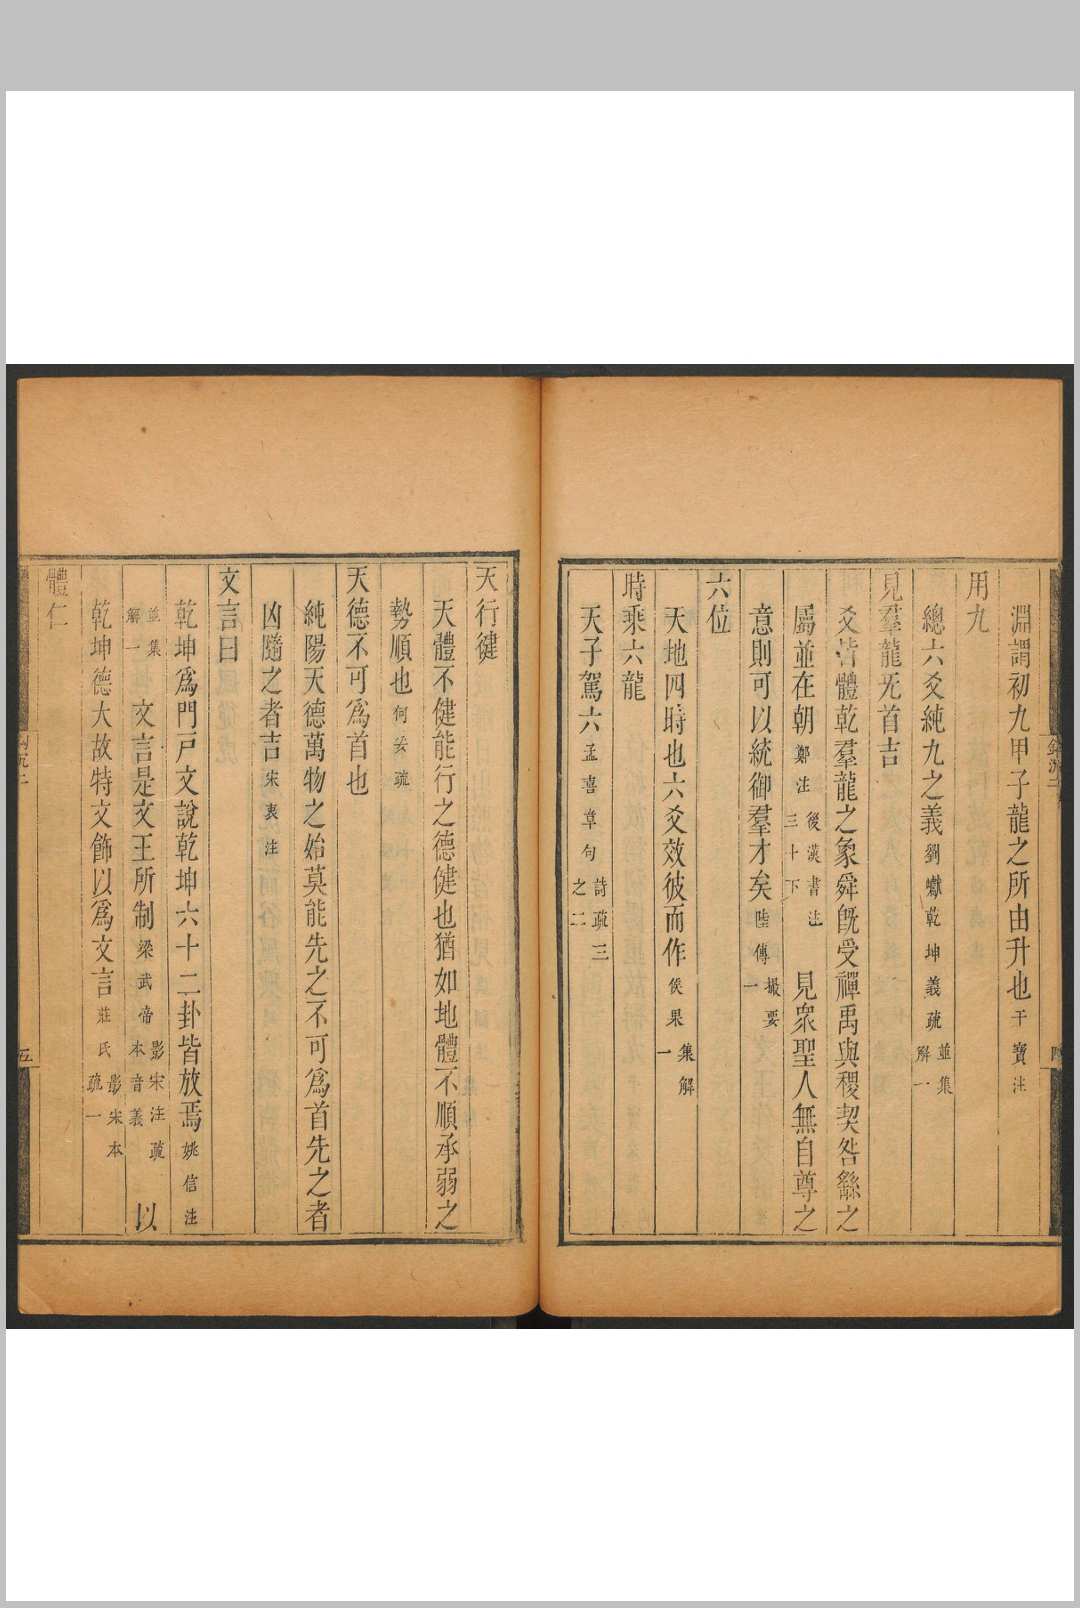 淵謂初九甲子龍之所由升也干寶注
用九
總六爻純九之義劉瓛乾坤義疏並集解一
見羣龍无首吉
爻皆體乾羣龍之象舜旣受禪禹與稷契咎繇之
屬並在朝鄭注後漢書注三十下見衆聖人無自尊之
意則可以統御羣才矣陸傳撮要一
六位
天地四時也六爻效彼而作侯果集解一
時乘六龍
天子駕六孟喜章句詩疏三之二
天行健
天體不健能行之德健也猶如地體不順承弱之
勢順也何妥疏
天德不可爲首也
純陽天德萬物之始莫能先之不可爲首先之者
凶隨之者吉宋衷注
文言曰
乾坤爲門戸文說乾坤六十二卦皆放焉姚信注
並集解一文言是文王所制梁武帝影宋注疏本音義以
乾坤德大故特文飾以爲文言莊氏影宋本疏一
體仁
五